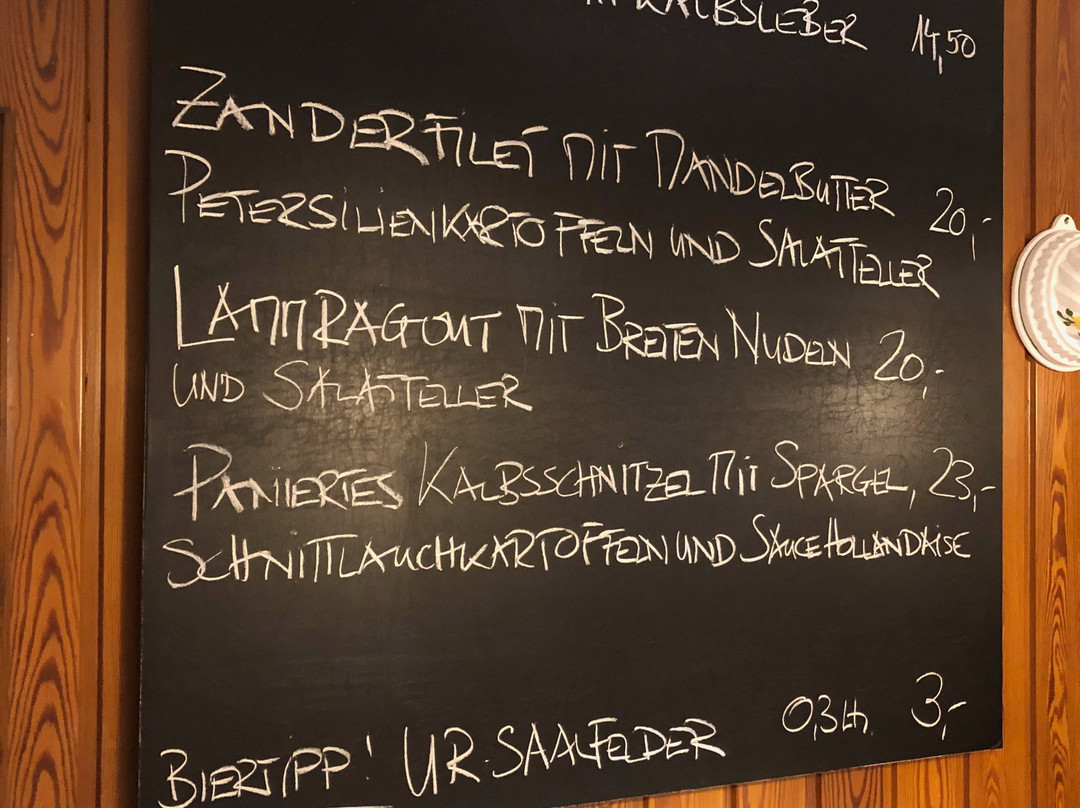 KALBSLEBER 14,50
ZANDERFILET MIT MANDELBUTTER 20,-
PETERSILIENKARTOFFELN UND SALATTELLER
LAMMRAGOUT MIT BREITEN NUDELN 20,-
UND SALATTELLER
PANIERTES KALBSSCHNITZEL MIT SPARGEL, 23,-
SCHNITTLAUCHKARTOFFELN UND SAUCE HOLLANDAISE
BIERTIPP! UR-SAALFELDER 0,3 Ltr. 3,-